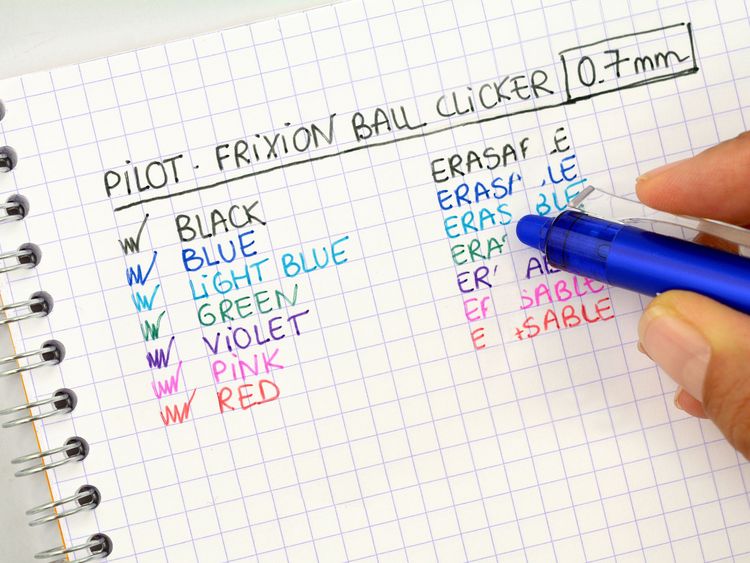 PILOT - FRIXION BALL CLICKER 0.7mm
BLACK
BLUE
LIGHT BLUE
GREEN
VIOLET
PINK
RED
ERASA LE
ERAS LE
ERAS BLE
ERA
ER A
E SABLE
E SABLE